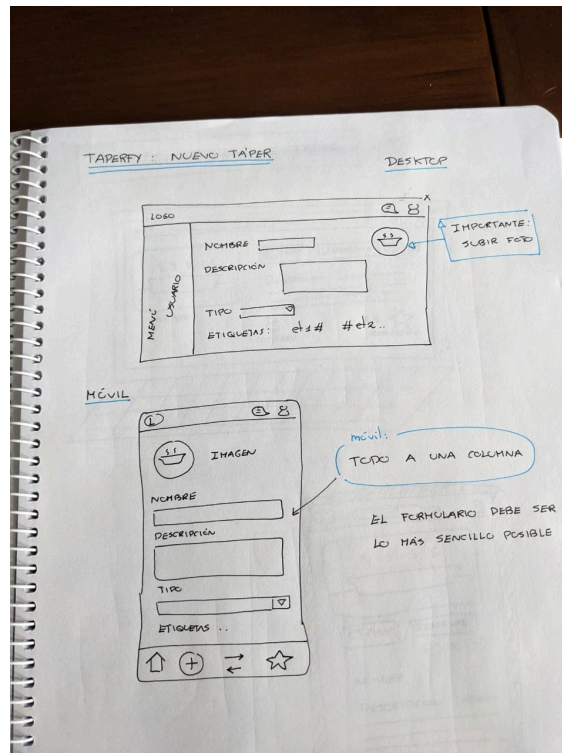 TAPERFY : NUEVO TÁPER
DESKTOP
LOGO
X
IMPORTANTE:
SUBIR FOTO
MENÚ
USUARIO
NOMBRE
DESCRIPCIÓN
TIPO
ETIQUETAS: et1# #et2..
MÓVIL
L
IMAGEN
NOMBRE
DESCRIPCIÓN
TIPO
ETIQUETAS ..
móvil:
TODO A UNA COLUMNA
EL FORMULARIO DEBE SER
LO MÁS SENCILLO POSIBLE